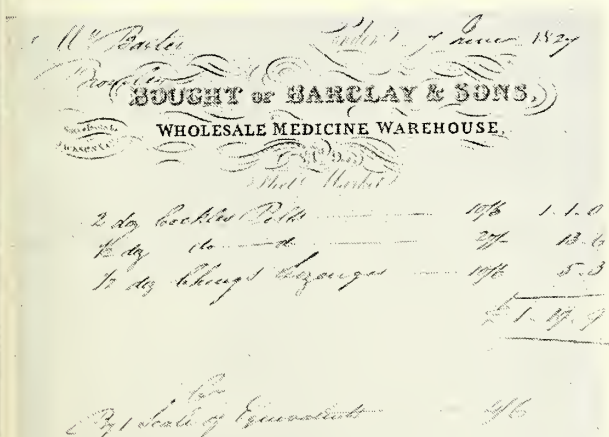 Mr Baxter London 7 June 1827
BOUGHT OF BARCLAY & SONS,
WHOLESALE MEDICINE WAREHOUSE,
No. 95
Fleet Market
2 doz Cockles Pills 10/6 1.1.0
½ doz do d 27/- 13.6
½ doz Chings Lozenges 10/6 5.3
£1-19-9
By 1 Scale of Equivalents 4/6